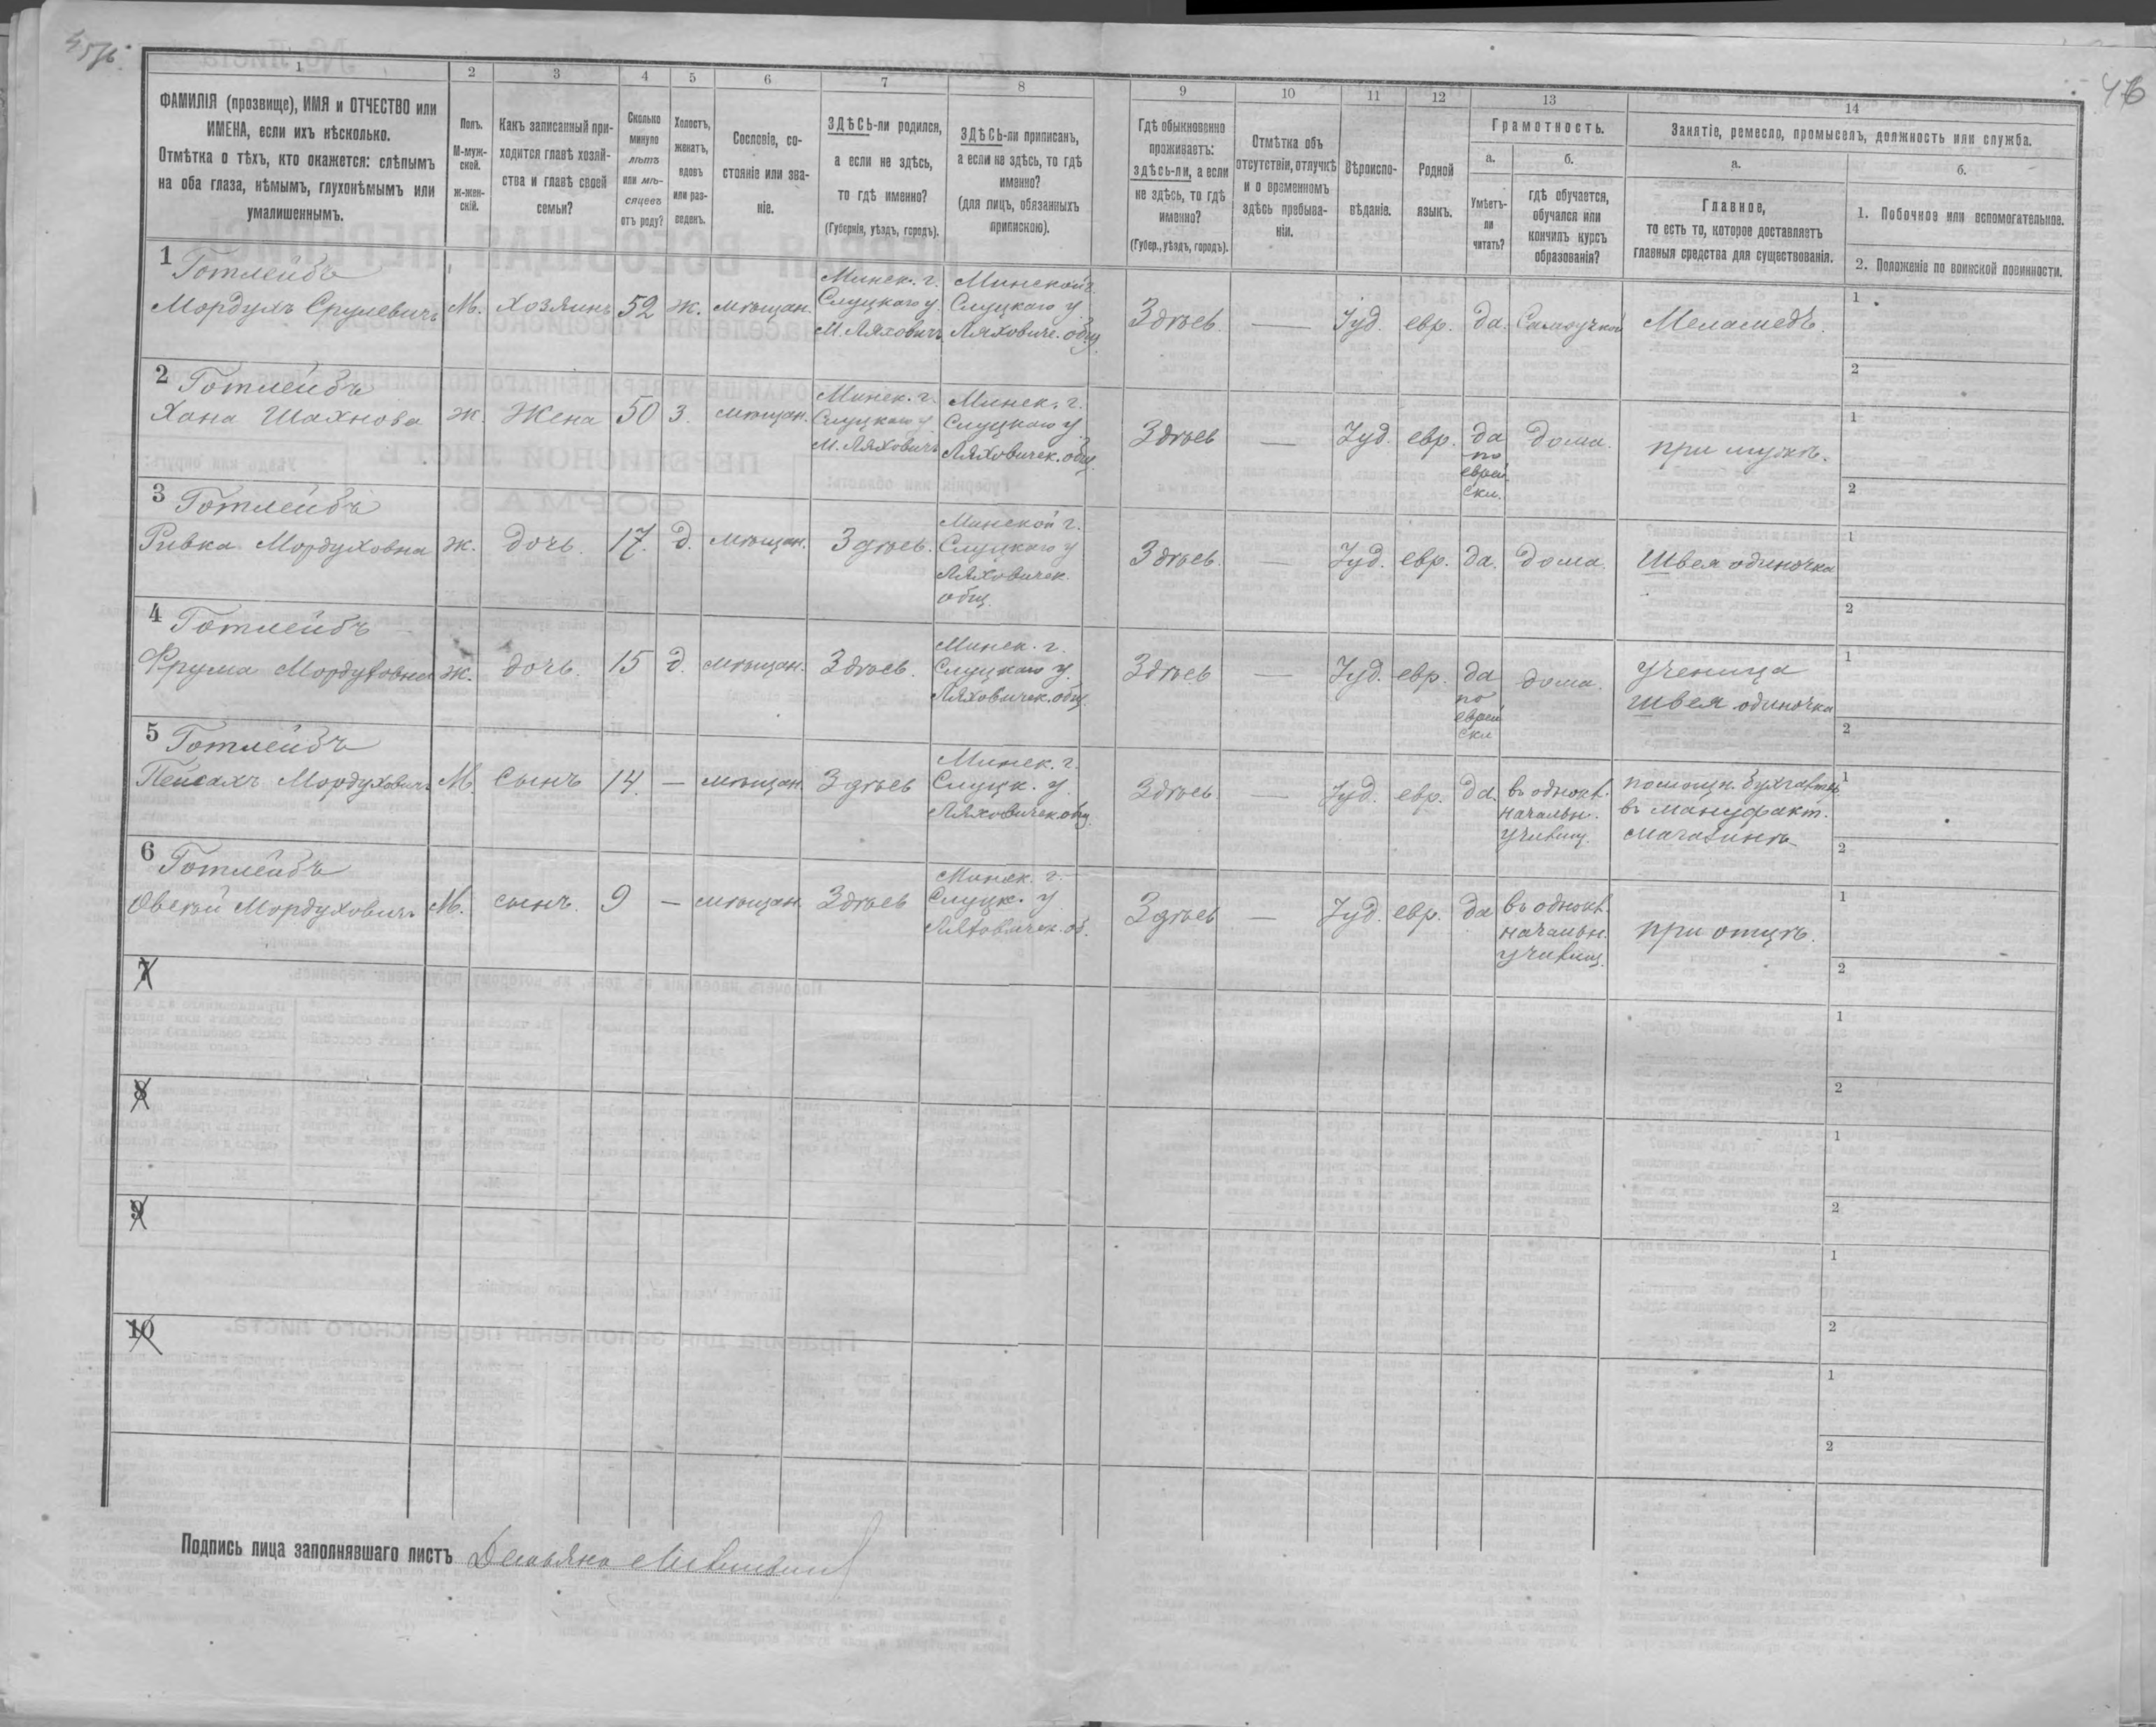 46
1
2
3
4
5
6
7
8
9
10
11
12
13
14
ФАМИЛІЯ (прозвище), ИМЯ и ОТЧЕСТВО или
ИМЕНА, если ихъ нѣсколько.
Отмѣтка о тѣхъ, кто окажется: слѣпымъ
на оба глаза, нѣмымъ, глухонѣмымъ или
умалишеннымъ.
Полъ.
М-муж-
ской.
ж-жен-
скій.
Какъ записанный при-
ходится главѣ хозяй-
ства и главѣ своей
семьи?
Сколько
минуло
лѣтъ
или мѣ-
сяцевъ
отъ роду?
Холостъ,
женатъ,
вдовъ
или раз-
веденъ.
Сословіе, со-
стояніе или зва-
ніе.
ЗДѢСЬ-ли родился,
а если не здѣсь,
то гдѣ именно?
(Губернія, уѣздъ, городъ).
ЗДѢСЬ-ли приписанъ,
а если не здѣсь, то гдѣ
именно?
(для лицъ, обязанныхъ
припискою).
Гдѣ обыкновенно
проживаетъ:
здѣсь-ли, а если
не здѣсь, то гдѣ
именно?
(Губер., уѣздъ, городъ).
Отмѣтка объ
отсутствіи, отлучкѣ
и о временномъ
здѣсь пребыва-
ніи.
Вѣроиспо-
вѣданіе.
Родной
языкъ.
Грамотность.
а.
Умѣетъ-
ли
читать?
б.
гдѣ обучается,
обучался или
кончилъ курсъ
образованія?
Занятіе, ремесло, промыселъ, должность или служба.
а.
Главное,
то есть то, которое доставляетъ
главныя средства для существованія.
б.
1. Побочное или вспомогательное.
2. Положеніе по воинской повинности.
1 Готлейбъ
Мордухъ Срулевичъ
М.
Хозяинъ
52
ж.
мѣщан.
Минск. г.
Слуцкаго у.
М. Ляховичъ
Минской г.
Слуцкаго у.
Ляхович. общ.
Здѣсь.
—
Іуд.
евр.
да.
Самоучкой
Меламедъ.
1
2
2 Готлейбъ
Хана Шахнова
ж.
Жена
50
З.
мѣщан.
Минск. г.
Слуцкаго у.
М. Ляховичъ
Минск. г.
Слуцкаго у.
Ляховичск. общ.
Здѣсь
—
Іуд.
евр.
да
по
еврей
ски.
дома.
при мужѣ.
1
2
3 Готлейбъ
Ривка Мордуховна
ж.
дочь.
17.
д.
мѣщан.
Здѣсь.
Минской г.
Слуцкаго у
Ляховичск.
общ.
Здѣсь.
—
Іуд.
евр.
да.
дома.
Швея одиночка
1
2
4 Готлейбъ
Фрума Мордуховна
ж.
дочь.
15
д.
мѣщан.
Здѣсь.
Минск. г.
Слуцкаго у.
Ляховичск. общ.
Здѣсь
—
Іуд.
евр.
да
по
еврей
ски
дома.
Ученица
швея одиночка
1
2
5 Готлейбъ
Пейсахъ Мордуховичъ
М.
Сынъ
14.
—
мѣщан.
Здѣсь
Минск. г.
Слуцк. у.
Ляховичск. общ.
Здѣсь
—
Іуд.
евр.
да.
въ однокл.
начальн.
училищ.
помощн. бухгалтера
въ мануфакт.
магазинѣ
1
2
6 Готлейбъ
Овсѣй Мордуховичъ
М.
сынъ.
9
—
мѣщан.
Здѣсь
Минск. г.
Слуцк. у
Ляховичск. об.
Здѣсь
—
Іуд.
евр.
да
въ однокл.
начальн.
училищ.
при отцѣ.
1
2
7
1
2
8
1
2
9
1
2
10
1
2
Подпись лица заполнявшаго листъ